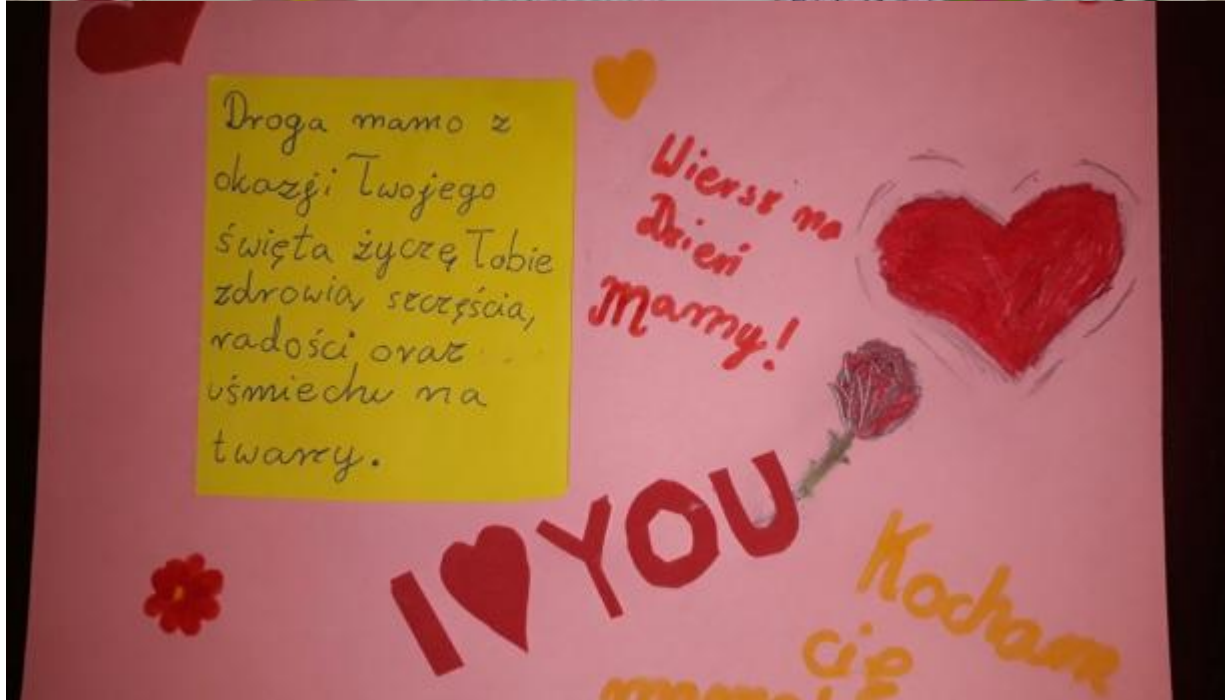 Droga mamo z
okazji Twojego
święta życzę Tobie
zdrowia, szczęścia,
radości oraz
uśmiechu na
twarzy.
Wiersz na
Dzień
Mamy!
I ♥ YOU
Kocham
cię